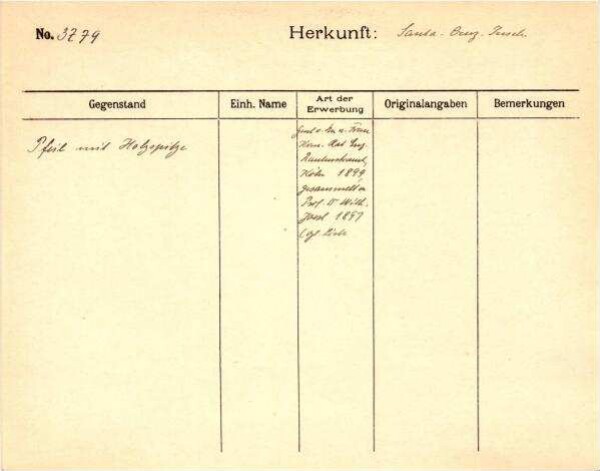 No. 3779 Herkunft: Santa-Cruz-Inseln
Gegenstand Einh. Name Art der Erwerbung Originalangaben Bemerkungen
Pfeil mit Holzspitze
Rautenstrauch,
Köln 1899,
gesammelt v.
Prof. Dr Wilh.
Joest 1897